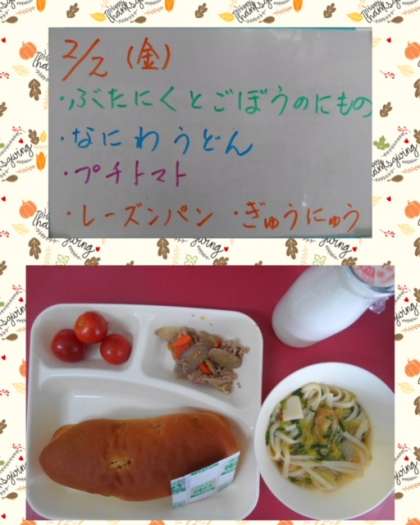 2/2 (金)
・ぶたにくとごぼうのにもの
・なにわうどん
・プチトマト
・レーズンパン ・ぎゅうにゅう